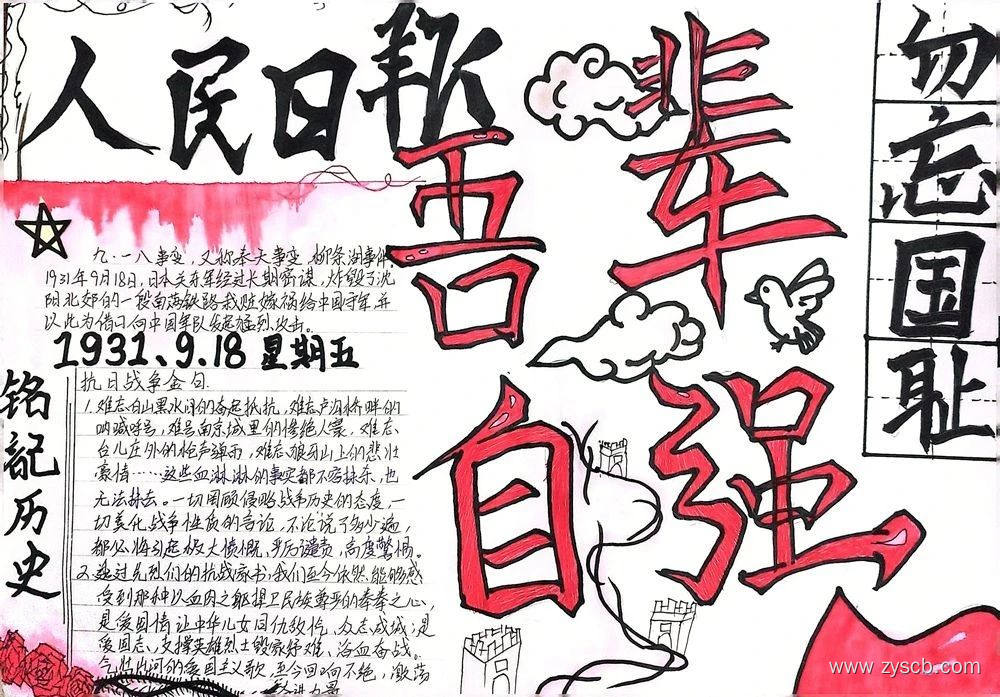 人民日報
吾辈
自强
勿忘国耻
九·一八事变，又称奉天事变、柳条湖事件。
1931年9月18日，日本关东军经过长期密谋，炸毁了沈
阳北郊的一段南满铁路，栽赃嫁祸给中国守军并
以此为借口向中国军队发起猛烈攻击。
1931、9.18 星期五
铭記历史
抗日战争金句
1.难忘白山黑水间的奋起抵抗，难忘卢沟桥畔的
呐喊呼号，难忘南京城里的惨绝人寰，难忘
台儿庄外的枪声弹雨，难忘狼牙山上的悲壮
豪情……这些血淋淋的事实都不容抹杀，也
无法抹去。一切罔顾侵略战争历史的态度，一
切美化战争性质的言论，不论说了多少遍，
都必将引起极大愤慨、严厉谴责，高度警惕。
2.透过先烈们的抗战家书，我们至今依然能够感
受到那种以血肉之躯捍卫民族尊严的拳拳之心，
是爱国情让中华儿女同仇敌忾、众志成城；是
爱国志，支撑英雄烈士毁家纾难、浴血奋战。
气壮山河的爱国主义歌，至今回响不绝，激荡
奋进力量
www.zyscb.com